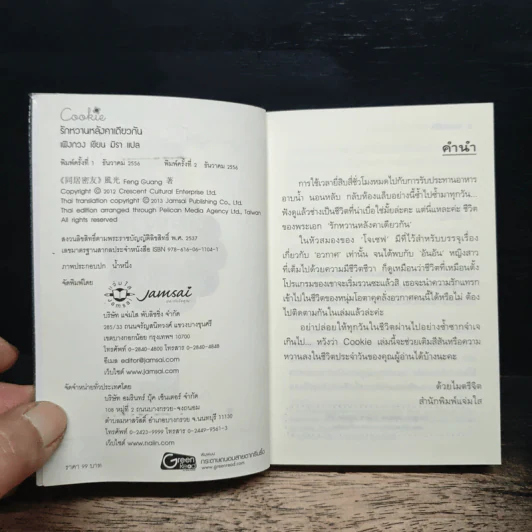 Cookie
รักหวานหลังคาเดียวกัน
เฟิงกวง เขียน มิรา แปล
พิมพ์ครั้งที่ 1 ธันวาคม 2556 พิมพ์ครั้งที่ 2 ธันวาคม 2556
《同居密友》風光 Feng Guang 著
Copyright © 2012 Crescent Cultural Enterprise Ltd.
Thai translation copyright © 2013 Jamsai Publishing Co., Ltd.
Thai edition arranged through Pelican Media Agency Ltd., Taiwan
All rights reserved
สงวนลิขสิทธิ์ตามพระราชบัญญัติลิขสิทธิ์ พ.ศ. 2537
เลขมาตรฐานสากลประจำหนังสือ ISBN 978-616-06-1104-1
ภาพประกอบปก น้ำหนึ่ง
จัดพิมพ์โดย
jamsai
บริษัท แจ่มใส พับลิชชิ่ง จำกัด
285/33 ถนนจรัญสนิทวงศ์ แขวงบางขุนศรี
เขตบางกอกน้อย กรุงเทพฯ 10700
โทรศัพท์ 0-2840-4800 โทรสาร 0-2840-4840
อีเมล editor@jamsai.com
เว็บไซต์ www.jamsai.com
จัดจำหน่ายทั่วประเทศโดย
บริษัท อมรินทร์ บุ๊ค เซ็นเตอร์ จำกัด
108 หมู่ที่ 2 ถนนบางกรวย-จงถนอม
ตำบลมหาสวัสดิ์ อำเภอบางกรวย จ.นนทบุรี 11130
โทรศัพท์ 0-2423-9999 โทรสาร
เว็บไซต์ www.naiin.com
ราคา 99 บาท
Green Read
กระดาษถนอมสายตากรีนรี้ด
www.greenread.com
คำนำ
การใช้เวลายี่สิบสี่ชั่วโมงหมดไปกับการรับประทานอาหาร
อาบน้ำ นอนหลับ กลับห้องแล็บอย่างนี้ซ้ำไปซ้ำมาทุกวัน...
ฟังดูแล้วช่างเป็นชีวิตที่น่าเบื่อใช่มั้ยล่ะคะ แต่นี่แหละค่ะ ชีวิต
ของพระเอก 'รักหวานหลังคาเดียวกัน'
ในหัวสมองของ 'โจเซฟ' มีที่ไว้สำหรับบรรจุเรื่อง
เกี่ยวกับ 'อวกาศ' เท่านั้น จนได้พบกับ 'อันอัน' หญิงสาว
ที่เต็มไปด้วยความมีชีวิตชีวา ก็ดูเหมือนว่าชีวิตที่เหมือนตั้ง
โปรแกรมของเขาจะเริ่มรวนซะแล้วสิ เธอจะนำความรักแทรก
เข้าไปในชีวิตของหนุ่มโอตาคุคลั่งอวกาศคนนี้ได้หรือไม่ ต้อง
ไปติดตามกันในเล่มแล้วล่ะค่ะ
อย่าปล่อยให้ทุกวันในชีวิตผ่านไปอย่างซ้ำซากจำเจ
เกินไป... หวังว่า Cookie เล่มนี้จะช่วยเติมสีสันหรือความ
หวานลงในชีวิตประจำวันของคุณผู้อ่านได้บ้างนะคะ
ด้วยไมตรีจิต
สำนักพิมพ์แจ่มใส